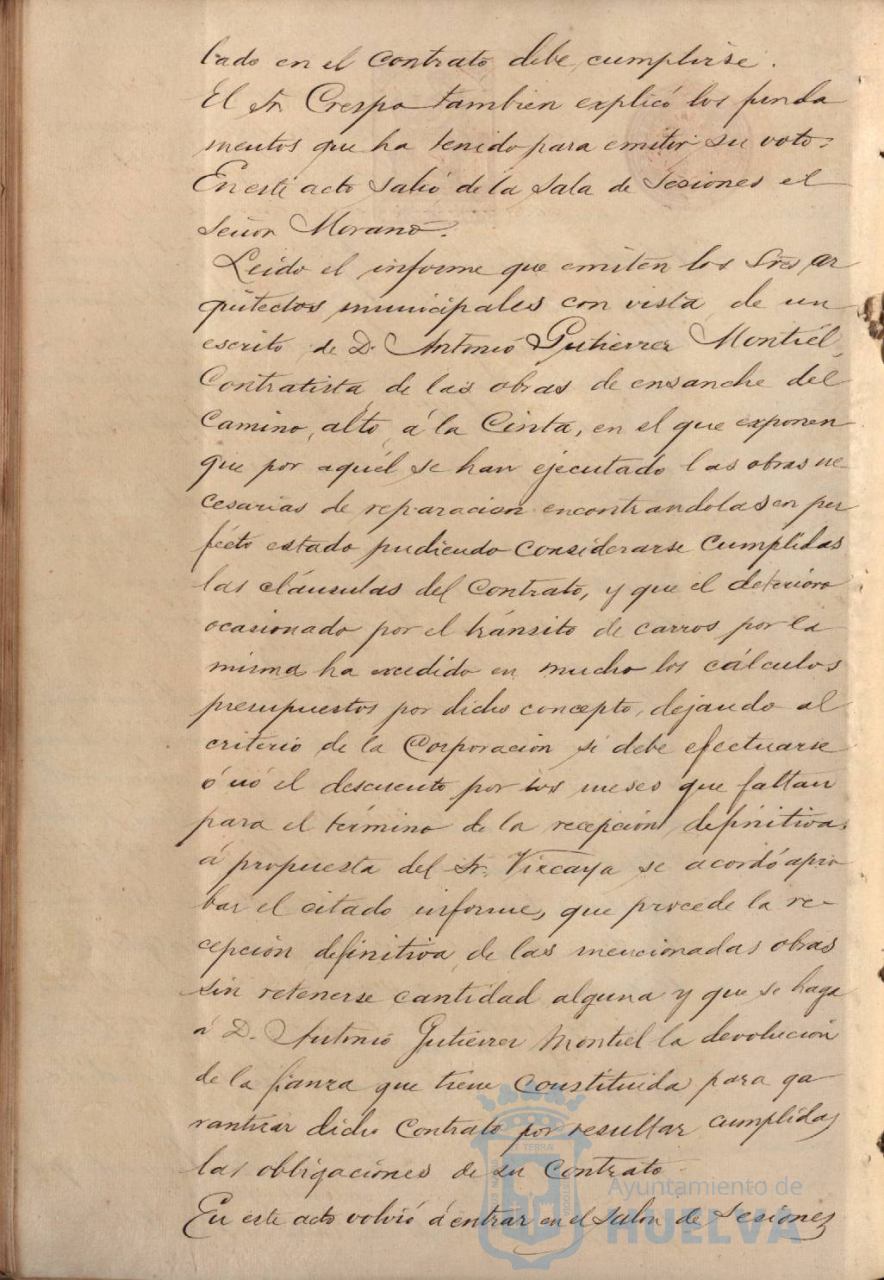 tado en el contrato debe cumplirse.
El Sr. Crespo tambien explicó los funda
mentos que ha tenido para emitir su voto.
En este acto salió de la Sala de Sesiones el
Señor Morano.
Leido el informe que emiten los Sres. ar
quitectos municipales con vista de un
escrito de D. Antonio Gutierrez Montiel,
Contratista de las obras de ensanche del
Camino alto á la Cinta, en el que exponen
que por aquél se han ejecutado las obras ne
cesarias de reparacion encontrandolas en per
fecto estado pudiendo considerarse cumplidas
las cláusulas del contrato, y que el deterioro
ocasionado por el tránsito de carros por la
misma ha excedido en mucho los cálculos
presupuestos por dicho concepto, dejando al
criterio de la Corporación si debe efectuarse
ó nó el descuento por los meses que faltan
para el término de la recepción definitiva,
á propuesta del Sr. Vizcaya se acordó apro
bar el citado informe, que procede la re-
cepción definitiva de las mencionadas obras
sin retenerse cantidad alguna y que se haga
á D. Antonio Gutierrez Montiel la devolución
de la fianza que tiene constituida para ga
rantizar dicho Contrato por resultar cumplidas
las obligaciones de su Contrato.
En este acto volvió á entrar en el Salon de Sesiones
Ayuntamiento de
HUELVA